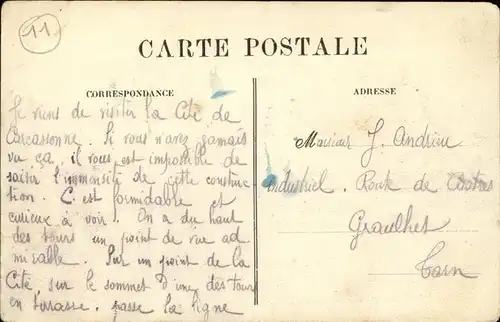 11
CARTE POSTALE
CORRESPONDANCE
Je viens de visiter la Cité de
Carcassonne. Si vous n'avez jamais
vu ça, il vous est impossible de
saisir l'immensité de cette construc
tion. C'est formidable et
curieux à voir. On a du haut
des tours un point de vue ad
mirable. Sur un point de la
Cité, sur le sommet d'une des tours
en terrasse, passe la ligne
ADRESSE
Monsieur J. Andrieu
industriel. Route de Castres
Graulhet
Tarn